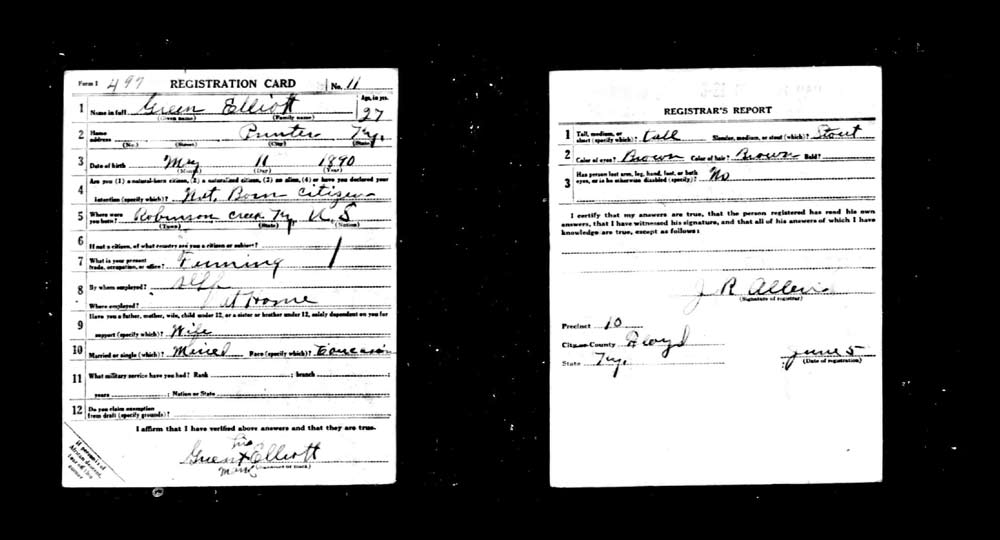 Form 1 497 REGISTRATION CARD No. 11
1 Name in full Green Elliott Age, in yrs. 27
(Given name) (Family name)
2 Home address Printer Ky.
(No.) (Street) (City) (State)
3 Date of birth May 11 1890
(Month) (Day) (Year)
4 Are you (1) a natural-born citizen, (2) a naturalized citizen, (3) an alien, (4) or have you declared your
intention (specify which)? Nat. Born citizen
5 Where were you born? Robinson Creek Ky. U.S
(Town) (State) (Nation)
6 If not a citizen, of what country are you a citizen or subject?
7 What is your present trade, occupation, or office?
8 By whom employed? Self
Where employed? At Home
9 Have you a father, mother, wife, child under 12, or a sister or brother under 12, solely dependent on you for
support (specify which)? Wife
10 Married or single (which)? Race (specify which)?
11 What military service have you had? Rank ; branch ;
years ; Nation or State
12 Do you claim exemption from draft (specify grounds)?
I affirm that I have verified above answers and that they are true.
his
Green x Elliott
mark (Signature or mark)
If person is of
African descent,
tear off this
corner
REGISTRAR'S REPORT
1 Tall, medium, or short (specify which)? Tall Slender, medium, or stout (which)? Stout
2 Color of eyes? Brown Color of hair? Brown Bald?
3 Has person lost arm, leg, hand, foot, or both eyes, or is he otherwise disabled (specify)? No
I certify that my answers are true, that the person registered has read his own
answers, that I have witnessed his signature, and that all of his answers of which I have
knowledge are true, except as follows:
J R
(Signature of registrar)
Precinct 10
City or County Floyd
State Ky. June 5
(Date of registration)